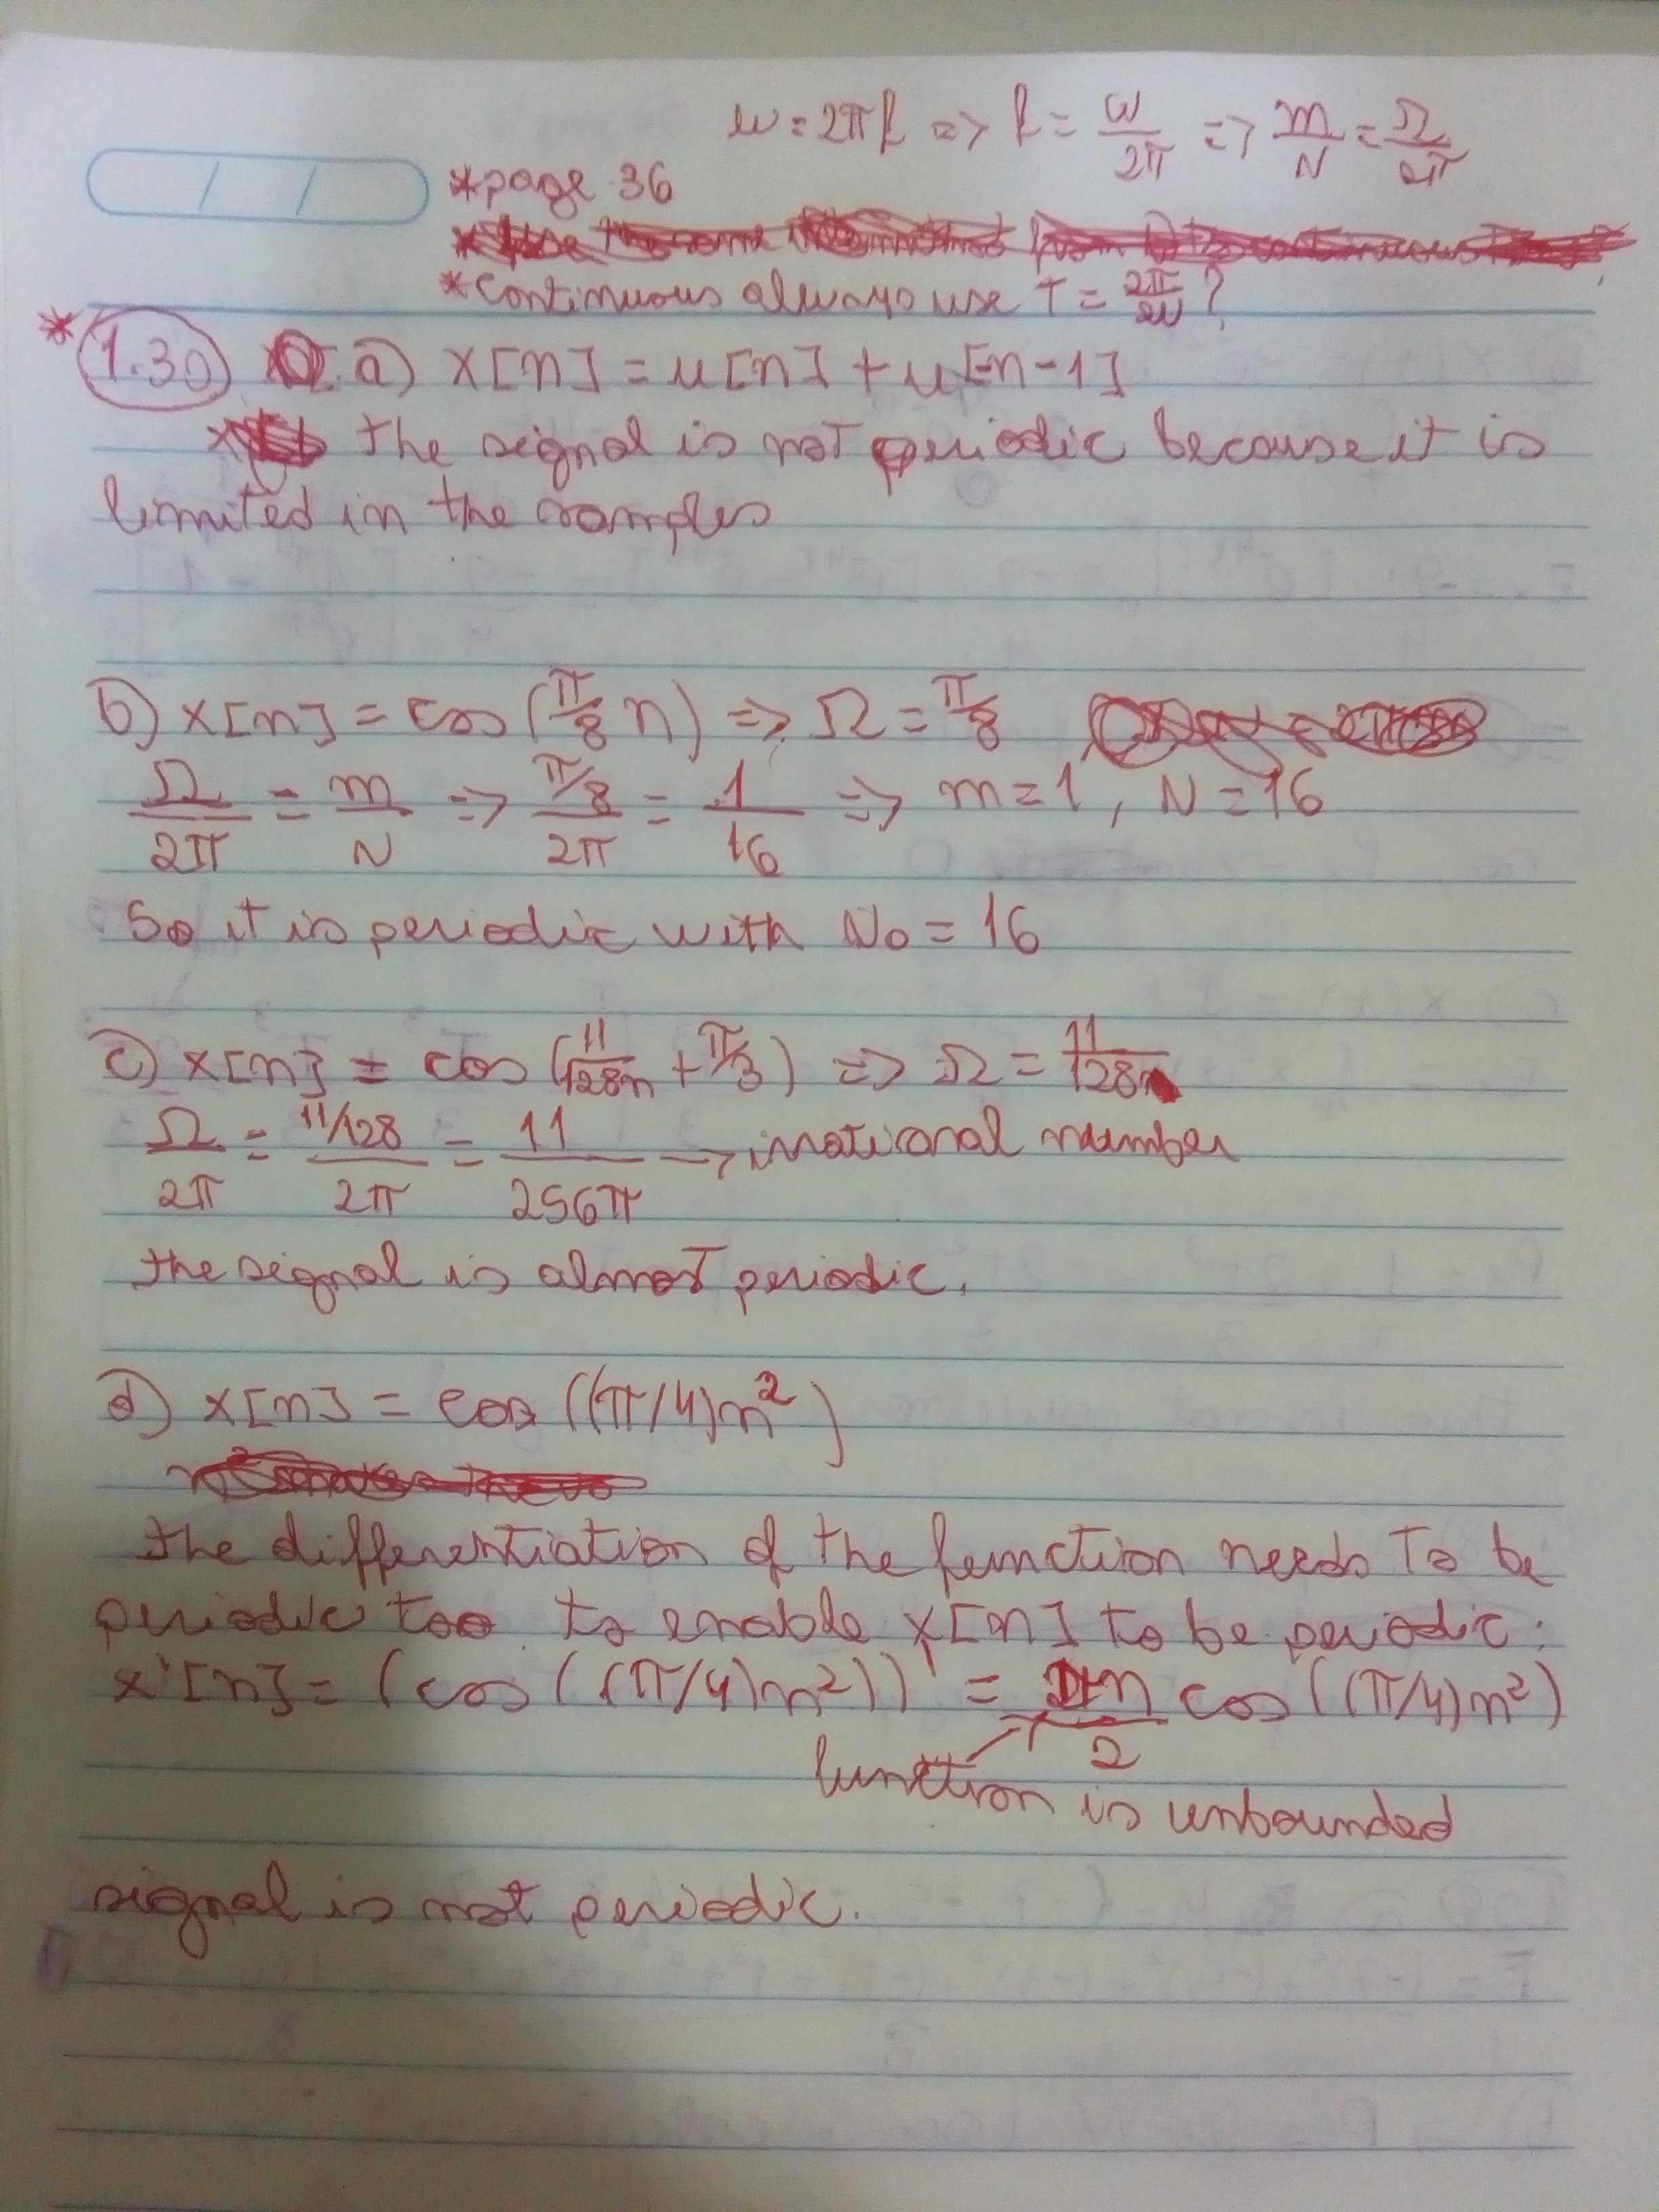 w = 2πf => f = w/2π => m/N = Ω/2π
*page 36
*continuous always use T = 2π/w?
* 1.30 a) x[n] = u[n] + u[-n-1]
the signal is not periodic because it is
limited in the samples
b) x[n] = cos(π/8 n) => Ω = π/8
Ω/2π = m/N => π/8/2π = 1/16 => m = 1, N = 16
So it is periodic with No = 16
c) x[n] = cos(11/128n + π/3) => Ω = 11/128
Ω/2π = 11/128/2π = 11/256π → irrational number
the signal is almost periodic.
d) x[n] = cos((π/4)n²)
the differentiation of the function needs to be
periodic too to enable x[n] to be periodic:
x'[n] = (cos((π/4)n²))' = πn/2 cos((π/4)n²)
function is unbounded
signal is not periodic.